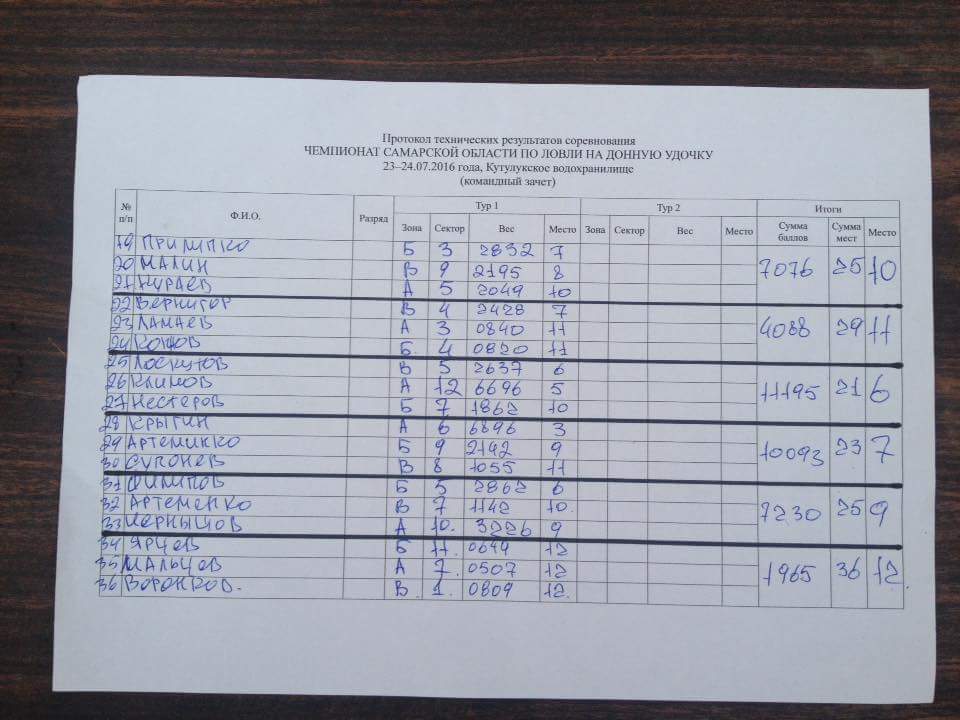 Протокол технических результатов соревнования
ЧЕМПИОНАТ САМАРСКОЙ ОБЛАСТИ ПО ЛОВЛИ НА ДОННУЮ УДОЧКУ
23–24.07.2016 года, Кутулукское водохранилище
(командный зачет)
№ п/п Ф.И.О. Разряд Тур 1 Тур 2 Итоги
Зона Сектор Вес Место Зона Сектор Вес Место Сумма баллов Сумма мест Место
19 ПРИЛИПКО Б 3 2832 7
20 МАЛИН В 9 2195 8 7076 25 10
21 А 5 2049 10
22 ВЕРНИГОР В 4 2428 7
23 ЛАМАЕВ А 3 0840 11 4088 29 11
24 Б. 4 0820 11
25 ЛОСКУТОВ В 5 2637 6
26 КЛИМОВ А 12 6696 5 11195 21 6
27 НЕСТЕРОВ Б 7 1862 10
28 КРЫГИН А 6 6896 3
29 АРТЕМИНКО Б 9 2142 9 10093 23 7
30 СУПОНЕВ В 8 1055 11
31 ФИЛИПОВ Б 5 2862 6
32 АРТЕМЕНКО В 7 1142 10. 7230 25 9
33 ЧЕРНЫШОВ А 10. 3226 9
34 ЯРЦЕВ Б 11. 0649 12
35 МАЛЬЦЕВ А 7. 0507 12 1965 36 12.
36 ВОРОНКОВ. В. 1. 0809 12.